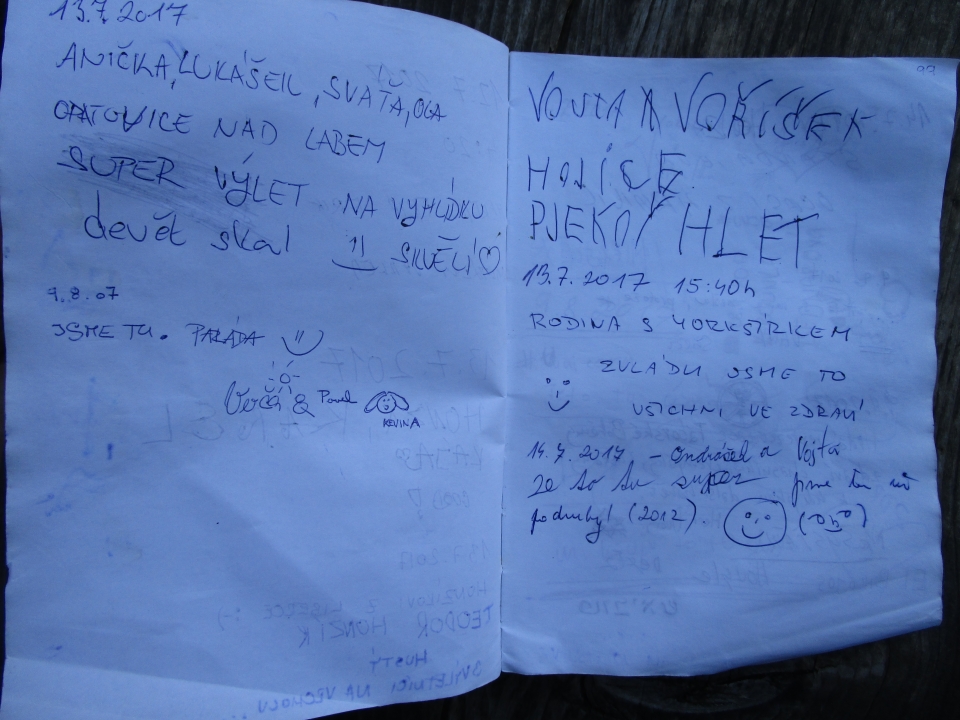 13.7.2017
ANIČKA, LUKÁŠEK, SVAŤA, OGA
OPATOVICE NAD LABEM
SUPER VÝLET NA VYHLÍDKU
devět skal SKVĚLÍ
9.8.07
JSME TU. PARÁDA
Verča & Pavel
KEVINA
99
VOJTA A VOŘÍŠEK
HOLICE
PJEKÓY HLET
13.7.2017 15:40h
RODINA S YORKŠÍRKEM
ZVLÁDLI JSME TO
VŠICHNI VE ZDRAVÍ
14.7.2017. - Ondrášek a Vojta
Je to tu super. Jsme tu už
podruhý (2012).